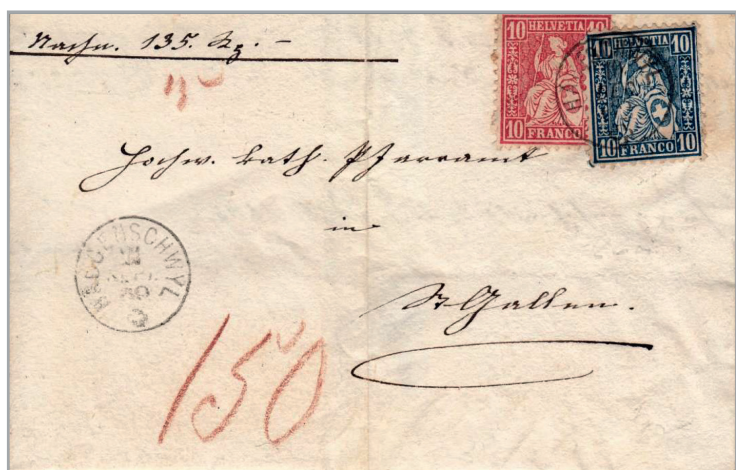 Nachn. 135. Rp. –
10 HELVETIA 10
10 FRANCO 10
10 HELVETIA 10
10 FRANCO 10
Hochw. kath. Pfarramt
in
St Gallen.
HÄGGENSCHWYL
150